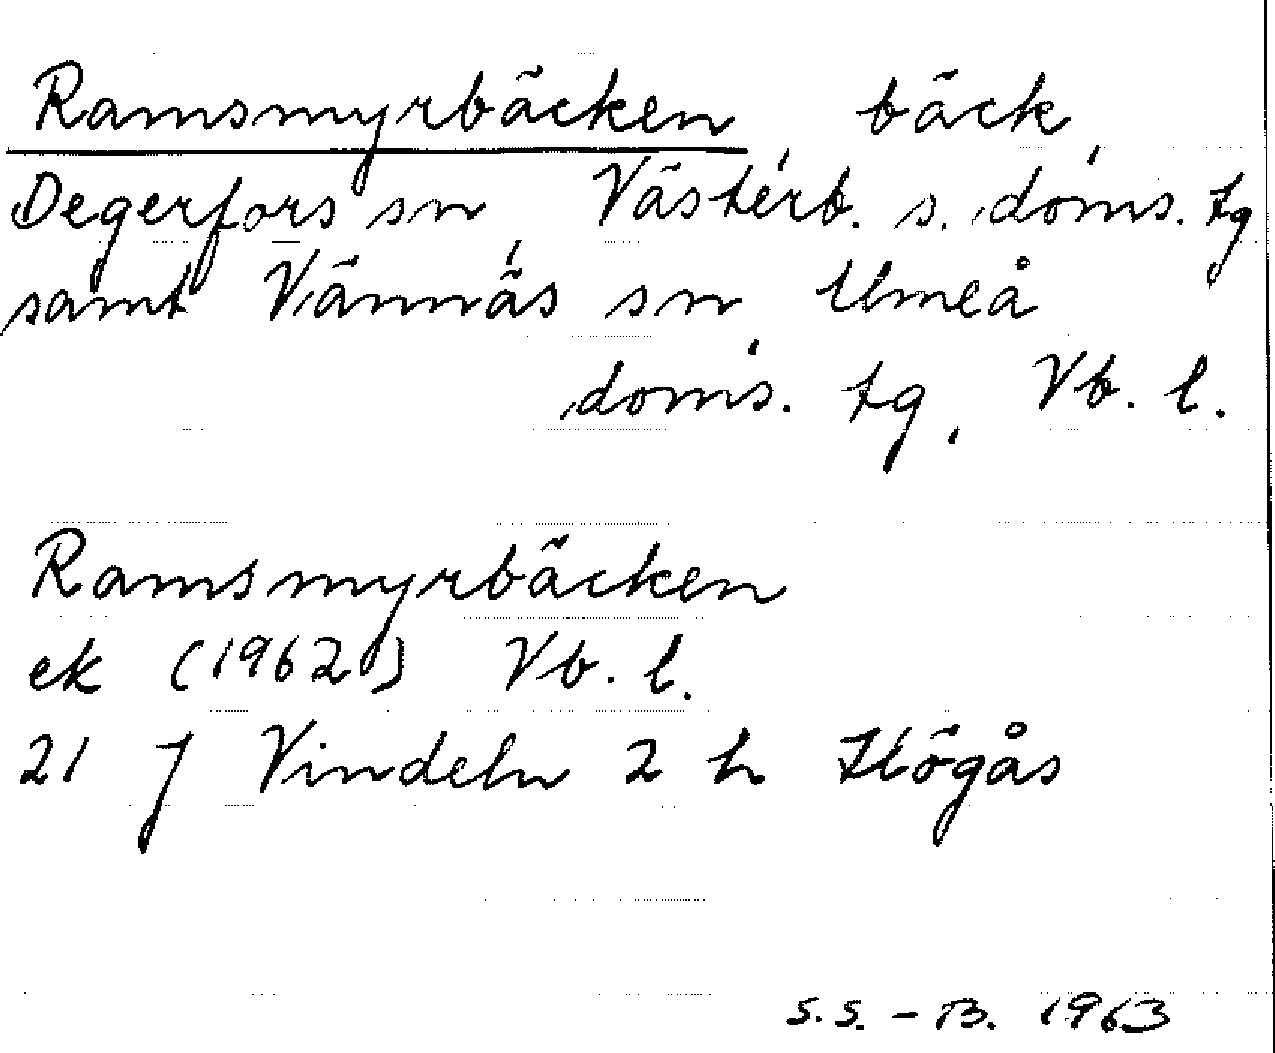 Ramsmyrbäcken bäck
Degerfors sn, Västerb. s. doms. tg
samt Vännäs sn, Umeå
doms. tg, Vb. l.
Ramsmyrbäcken
ek (1962) Vb. l.
21 J Vindeln 2 h Högås
S.S. - B. 1963